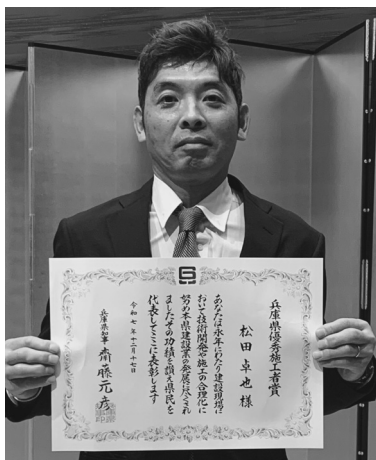 兵庫県優秀施工者賞
松田卓也様
あなたは永年にわたり建設現場に
おいて技術開発や施工の合理化に
努め本県建設業の発展に尽くされ
ましたその功績を讃え県民を
代表してここに表彰します
令和七年十二月十七日
兵庫県知事 齋藤元彦